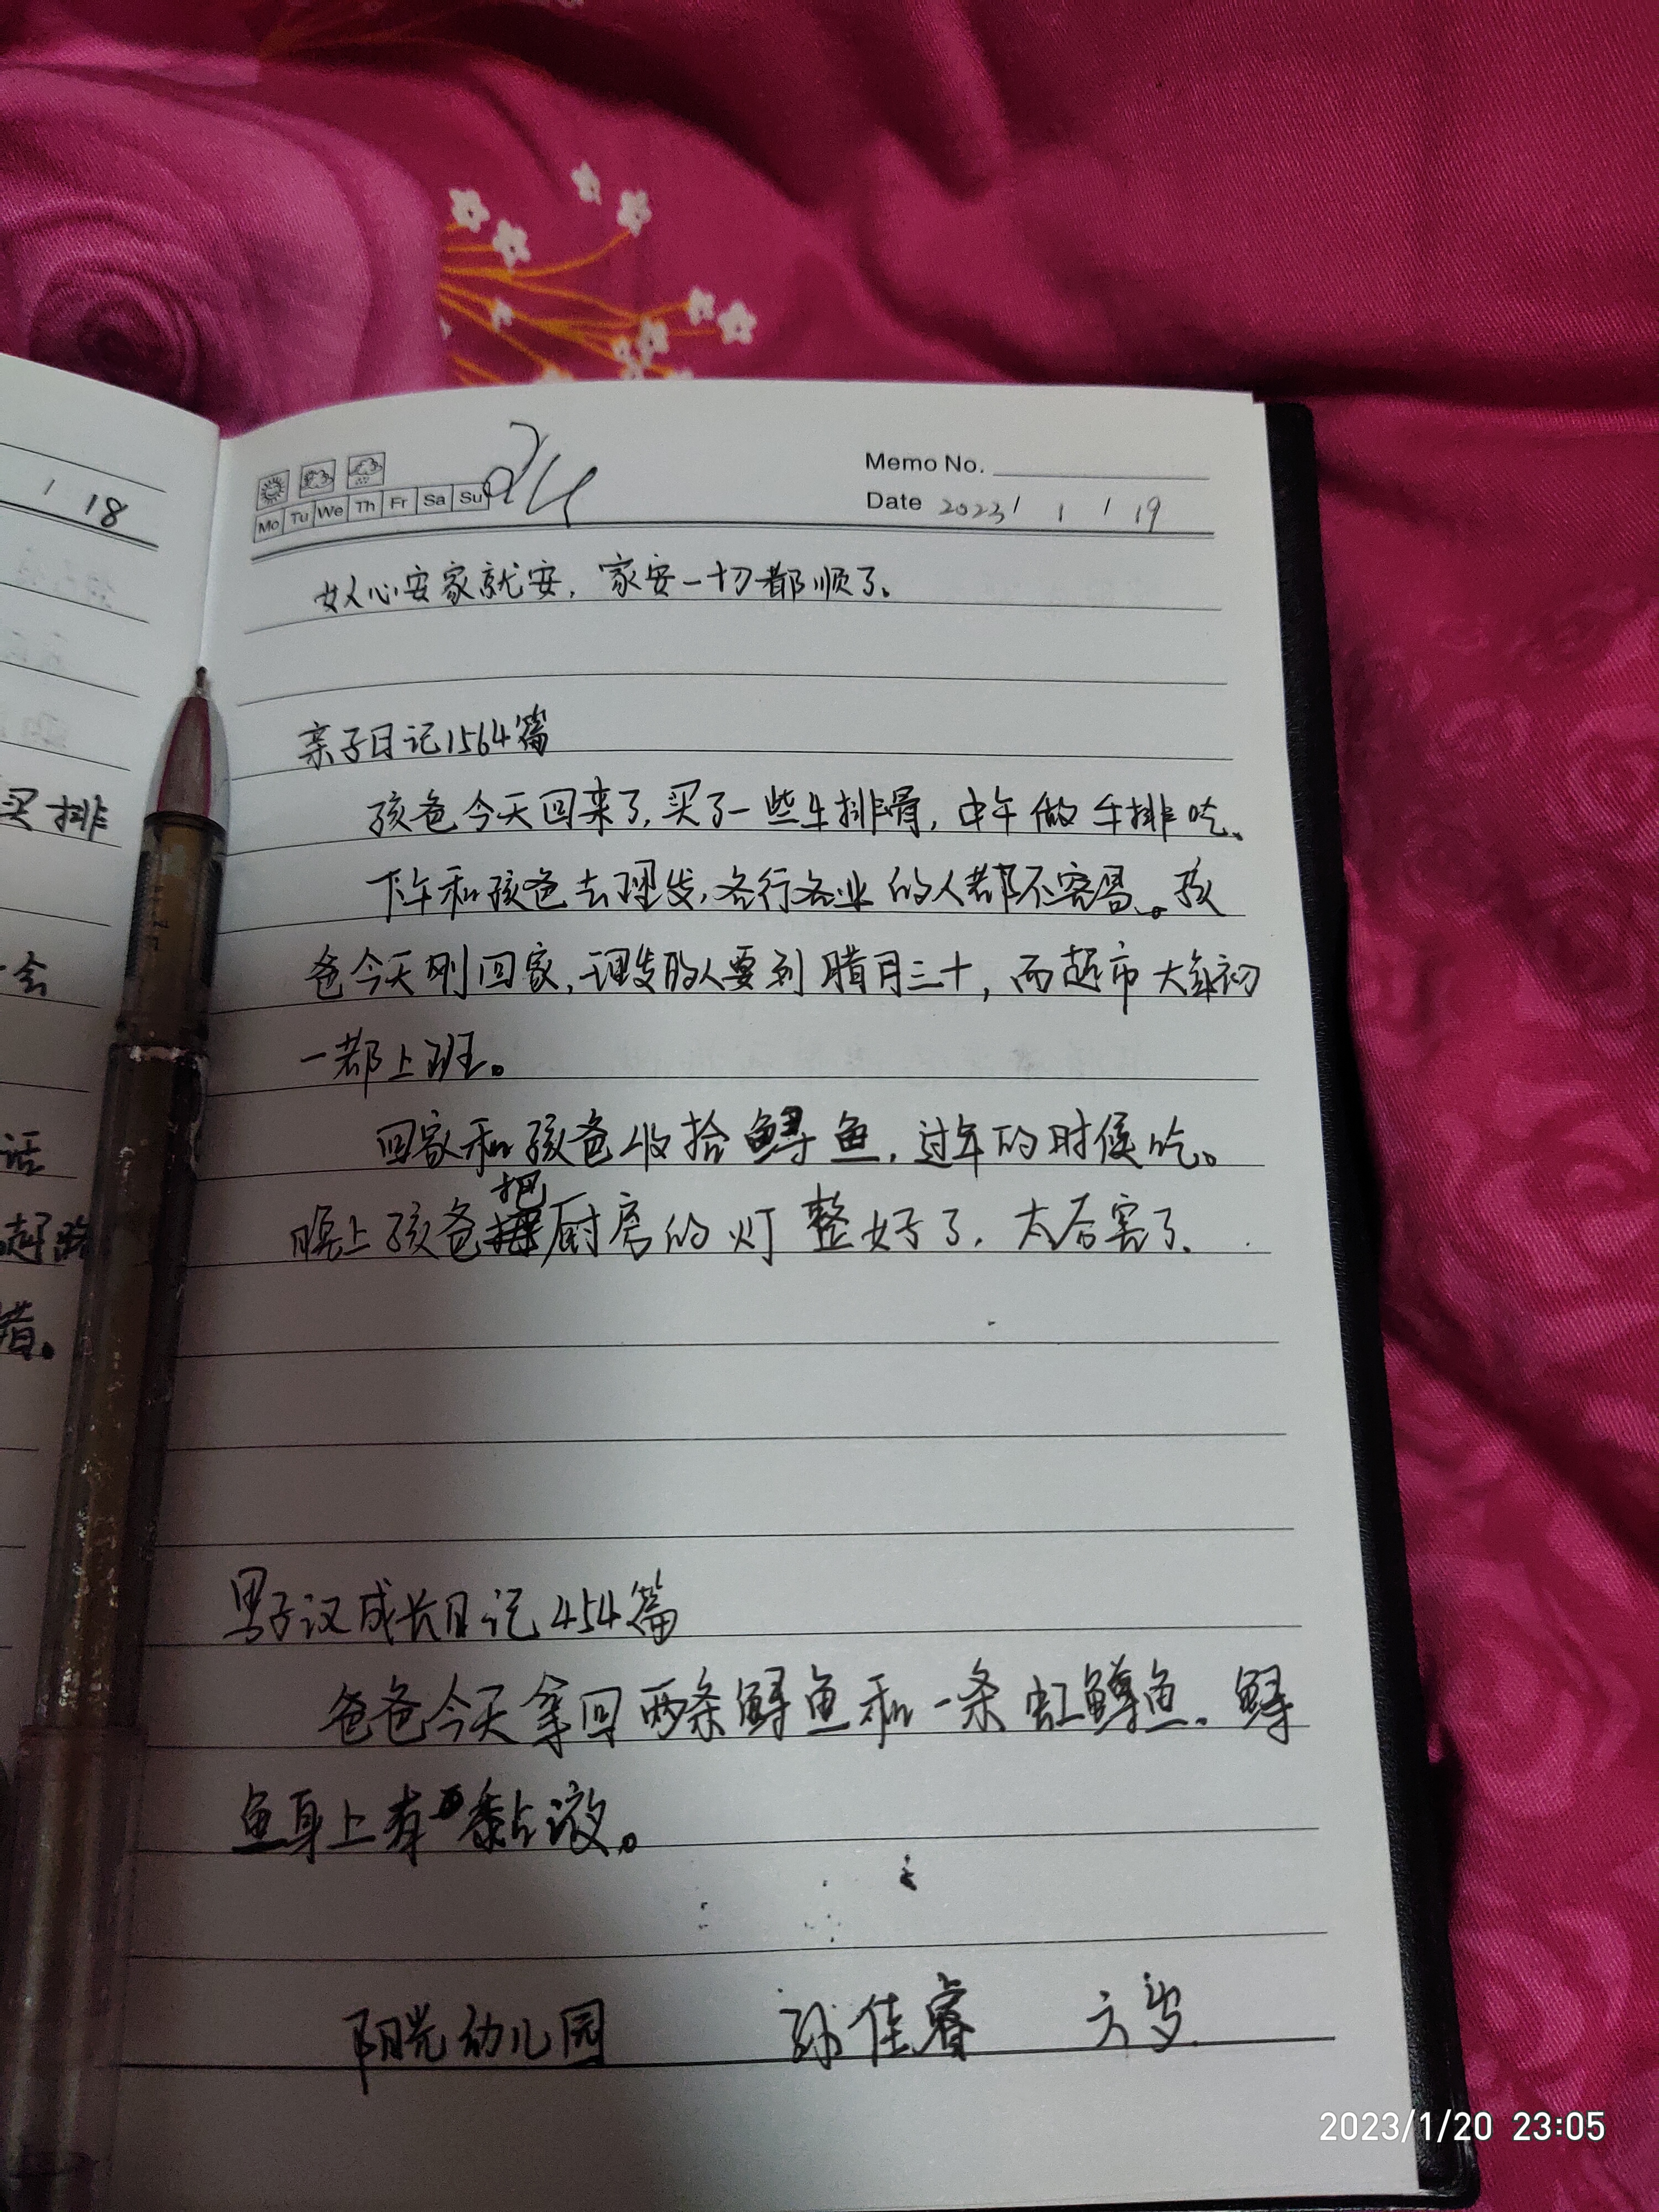 1 18
买排
会
话
赶路
错。
24
Memo No.
Mo Tu We Th Fr Sa Su
Date 2023/ 1 / 19
女人心安家就安，家安一切都顺了。
亲子日记1564篇
孩爸今天回来了，买了一些牛排骨，中午做牛排吃、
下午和孩爸去理发，各行各业的人都不容易。孩
爸今天刚回家，理发的人要到腊月三十，而超市大年初
一都上班。
回家和孩爸收拾鲟鱼，过年的时候吃。
晚上孩爸把厨房的灯整好了，太厉害了、
男子汉成长日记454篇
爸爸今天拿回两条鲟鱼和一条虹鳟鱼、鲟
鱼身上有黏液。
阳光幼儿园 孙佳睿 六岁
2023/1/20 23:05